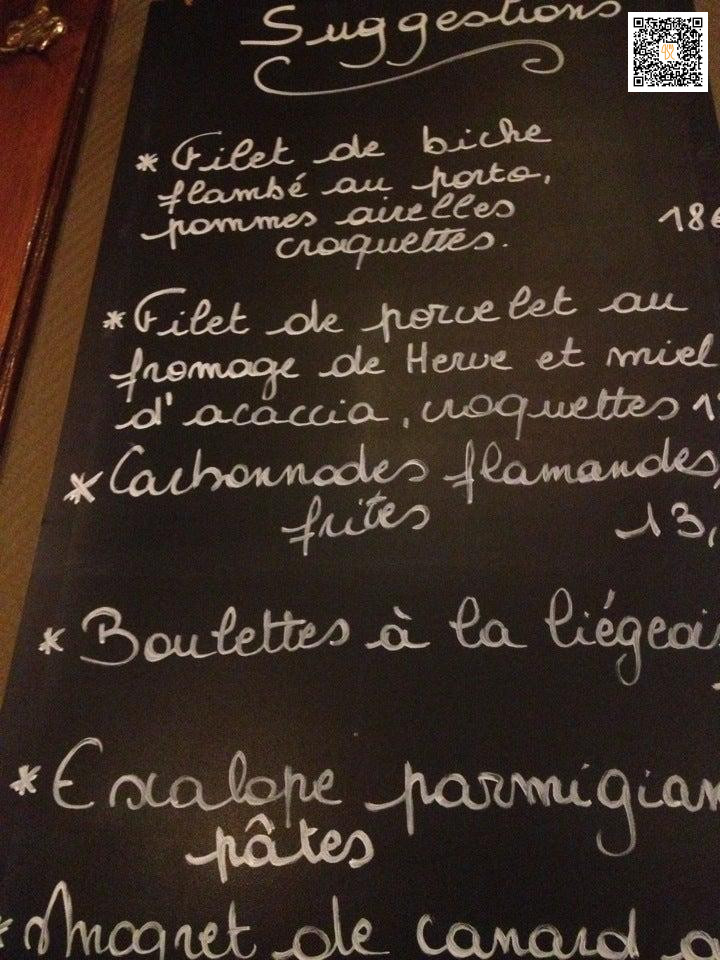 Suggestions
* Filet de biche
flambé au porto,
pommes airelles
croquettes. 18€
* Filet de porcelet au
fromage de Herve et miel
d'acaccia, croquettes
* Carbonnades flamandes,
frites 13,
* Boulettes à la liégeois
* Escalope parmigian
pâtes
* Magret de canard